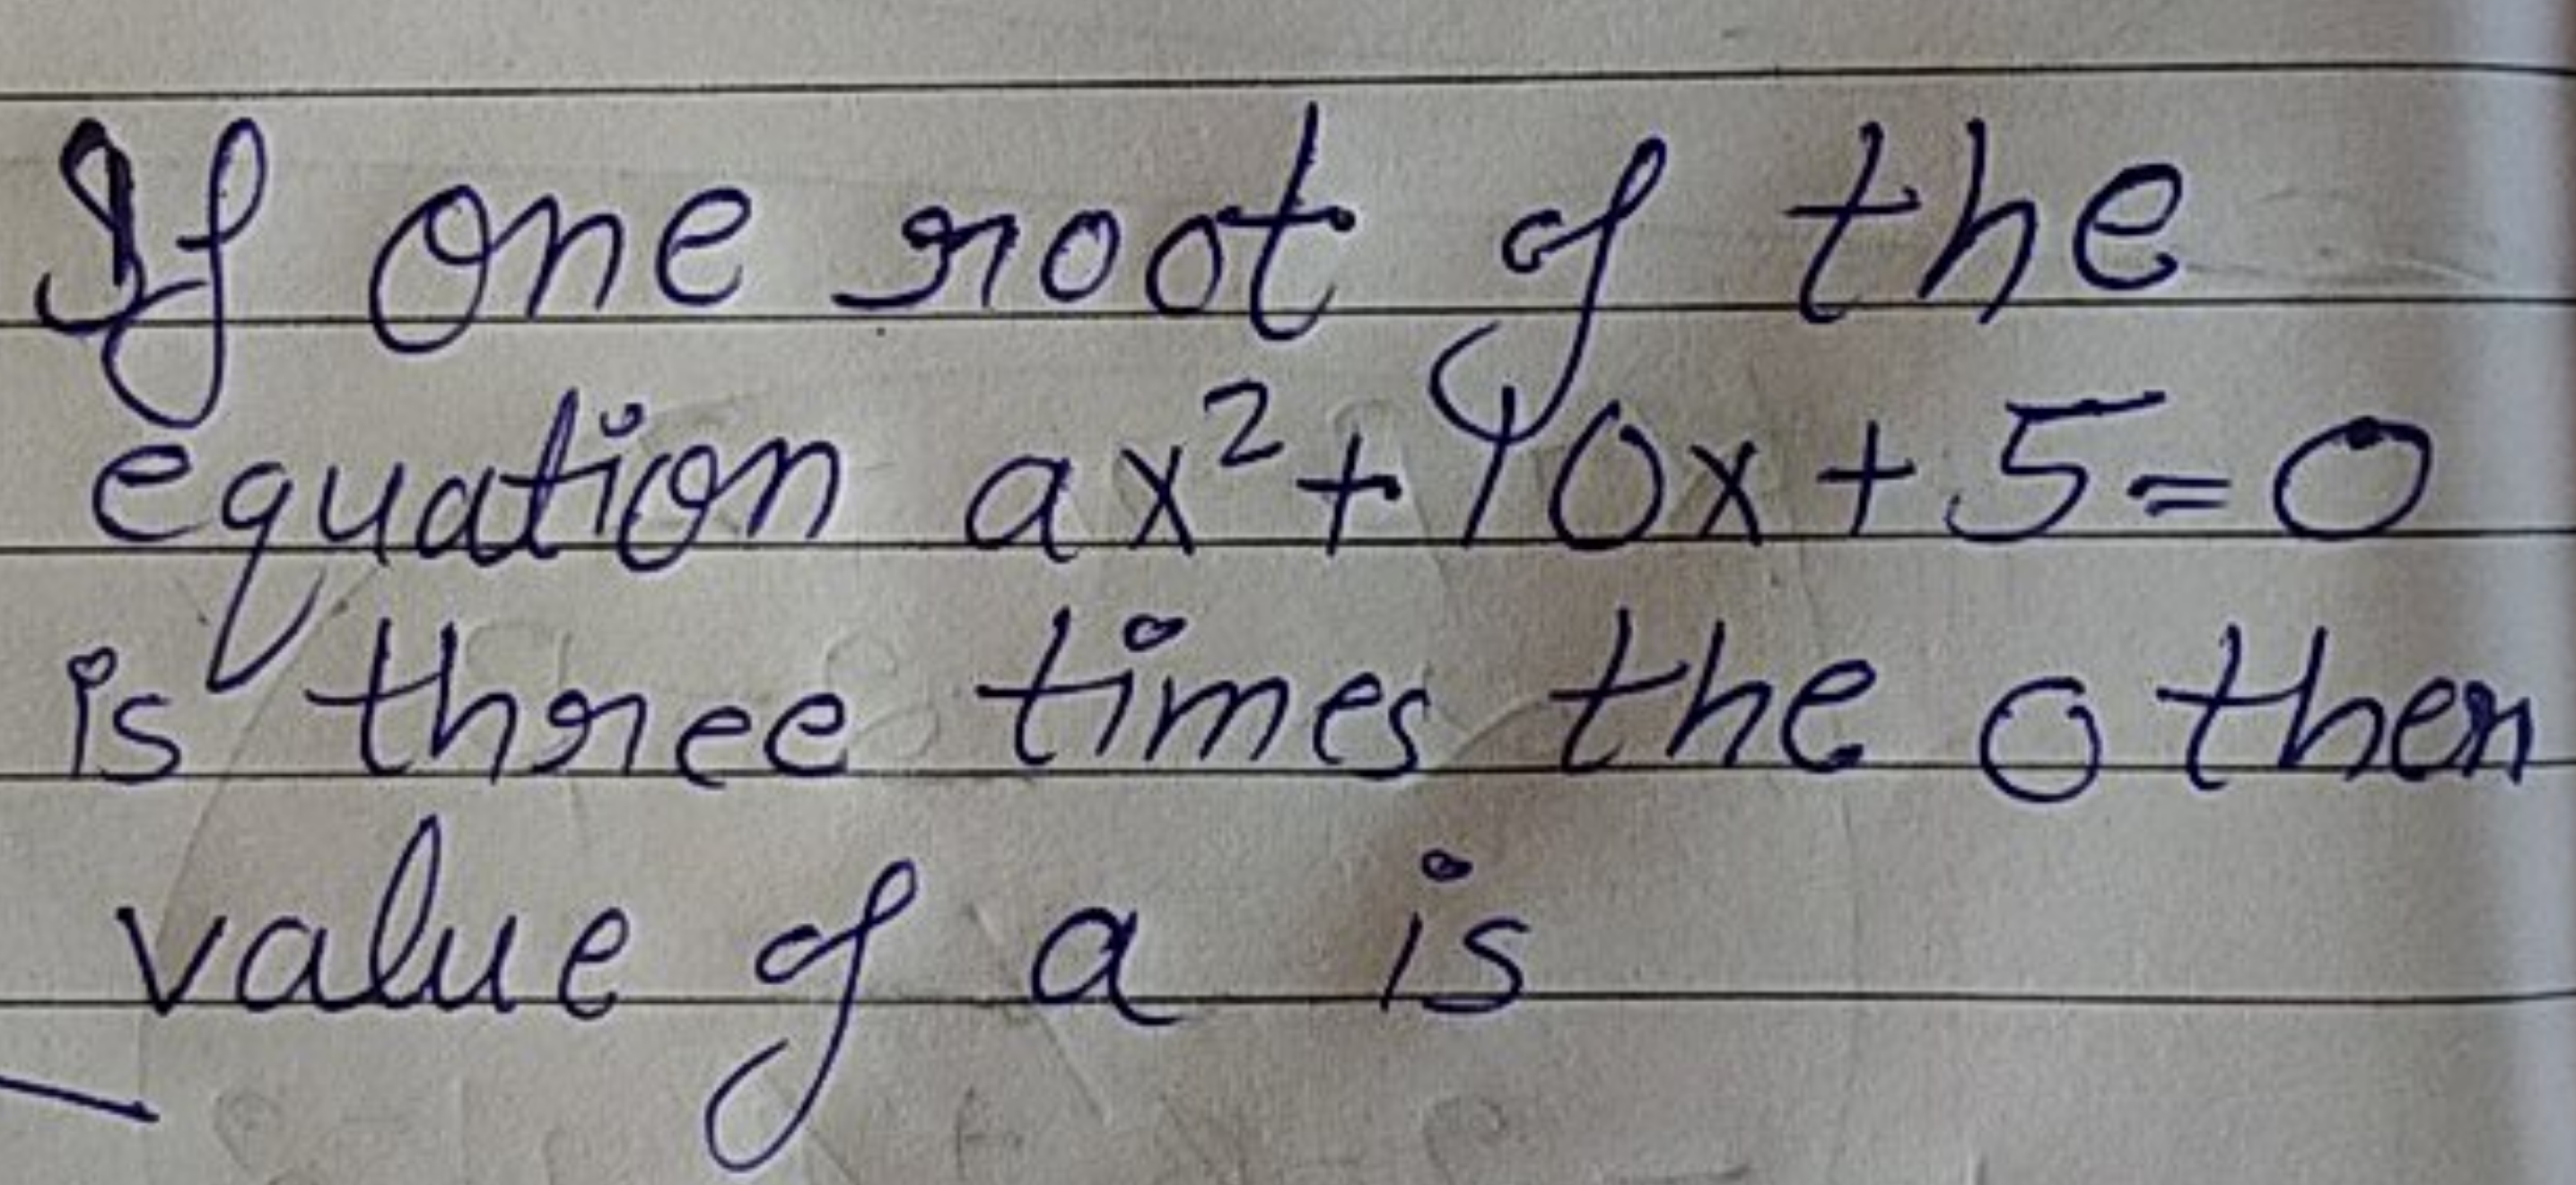 If one root of the
equation ax²+10x+5=0
is three times the other
value of a is